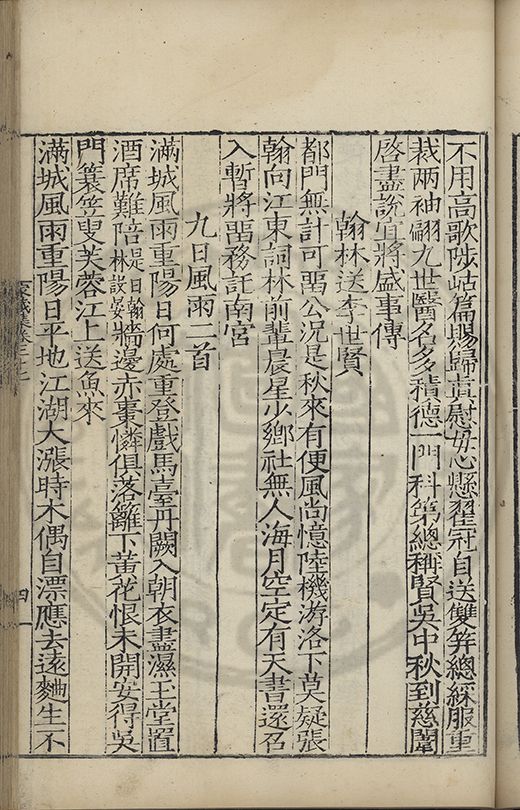 不用高歌陟岵篇賜歸真慰母心懸翟冠自送雙笄總綵服重
裁两袖翩九世醫名多積德一門科第總稱賢吳中秋到慈闈
啓盡說宜將盛事傳
翰林送李世賢
都門無計可畱公况是秋來有便風尚憶陸機游洛下莫疑張
翰向江東詞林前輩晨星少鄉社無人海月空定有天書還召
入暫將畱務託南宮
九日風雨二首
滿城風雨重陽日何處重登戲馬臺丹闕入朝衣盡濕玉堂置
酒席難陪是日翰林設宴牆邉赤棗憐俱落籬下黄花恨未開安得吳
門蓑笠叟芙蓉江上送魚來
滿城風雨重陽日平地江湖大漲時木偶自漂應去遠麯生不
四